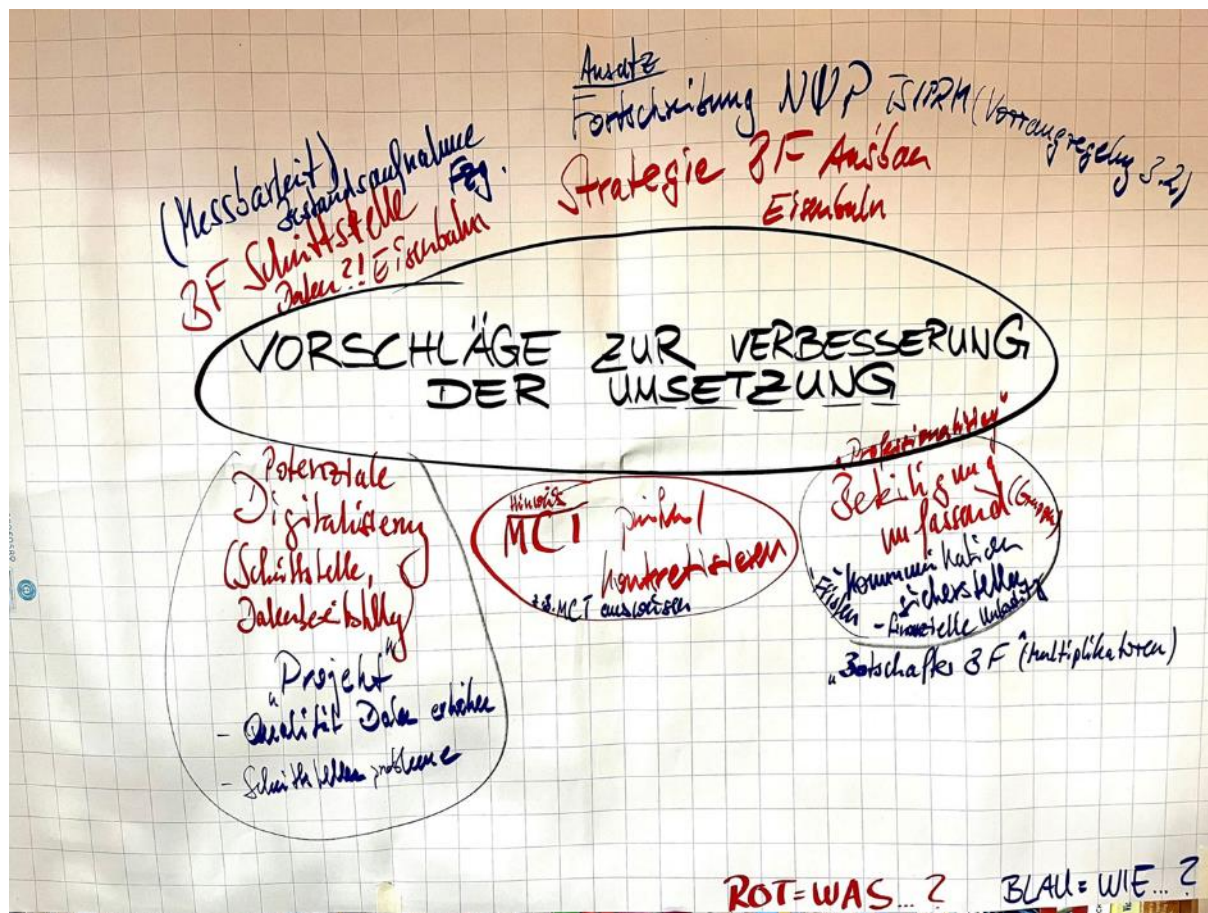 Ansatz
Fortschreibung NUP TSI PRM (Vorrangregelung 3.2)
Strategie BF Ausbau
Eisenbahn
(Messbarkeit)
Bestandsaufnahme
Fzg.
BF Schnittstelle
Daten?! Eisenbahn
VORSCHLÄGE ZUR VERBESSERUNG
DER UMSETZUNG
Potenziale
Digitalisierung
(Schnittstelle,
Datenbereitstellung)
"Projekt"
- Qualität Daten erhöhen
- Schnittstellenprobleme
Hinweis
MCT
konkretisieren
z.B. MCT ausweisen
"Professionalisierung"
Beteiligung
umfassend
Kommunikation
sicherstellen
- finanzielle
"Botschafter BF" (Multiplikatoren)
ROT=WAS...? BLAU=WIE...?